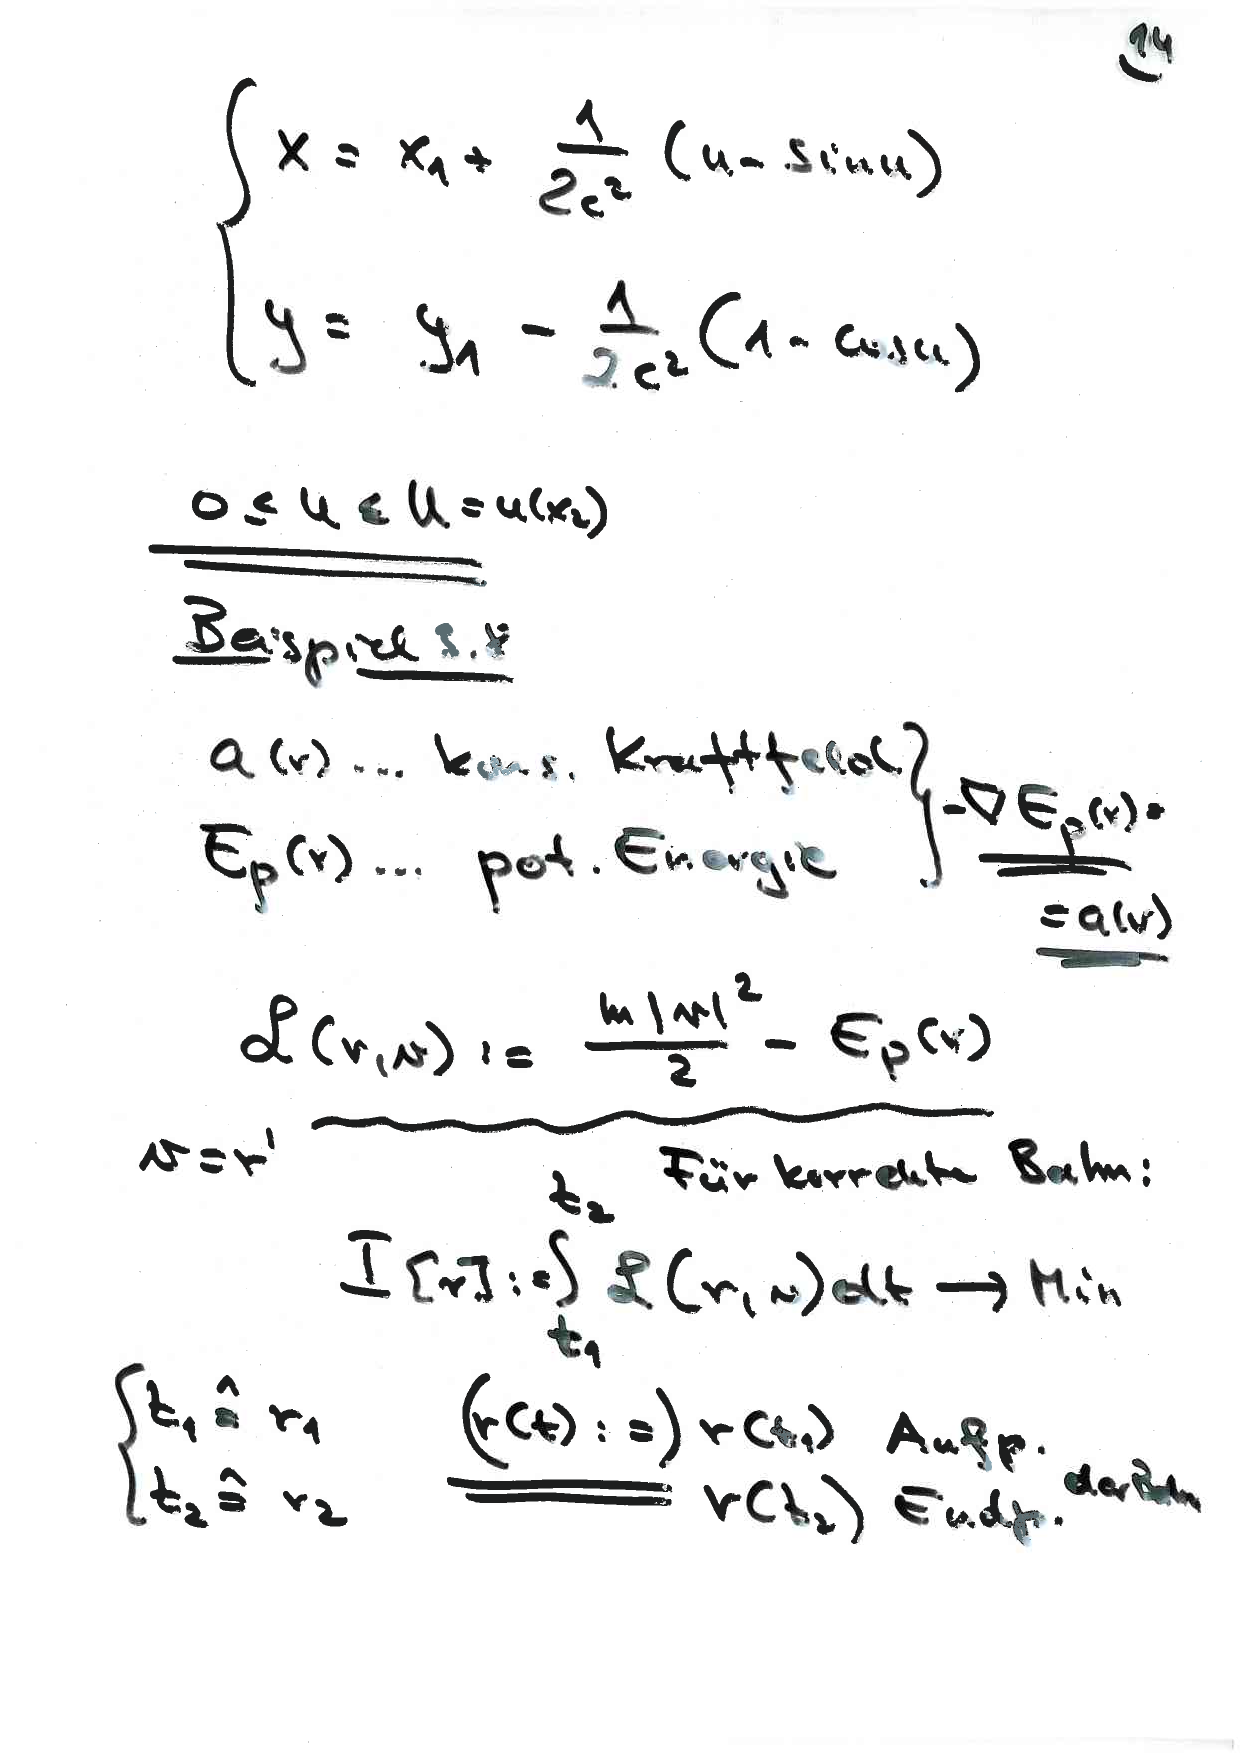 14
x = x₁ + 1/(2c²) (u - sin u)
y = y₁ - 1/(2c²) (1 - cos u)
0 ≤ u ≤ U = u(x₂)
Beispiel
a(r) ... kons. Kraftfeld
- ∇ E_p(r) =
E_p(r) ... pot. Energie
= a(r)
ℒ(r, v) := m|v|²/2 - E_p(r)
v = r'
Für korrekte Bahn:
I[r] := ∫_{t₁}^{t₂} ℒ(r, v) dt → Min
t₁ ≙ r₁ (r(t) :=) r(t₁) Anfp.
t₂ ≙ r₂ r(t₂) Endp. der Bahn